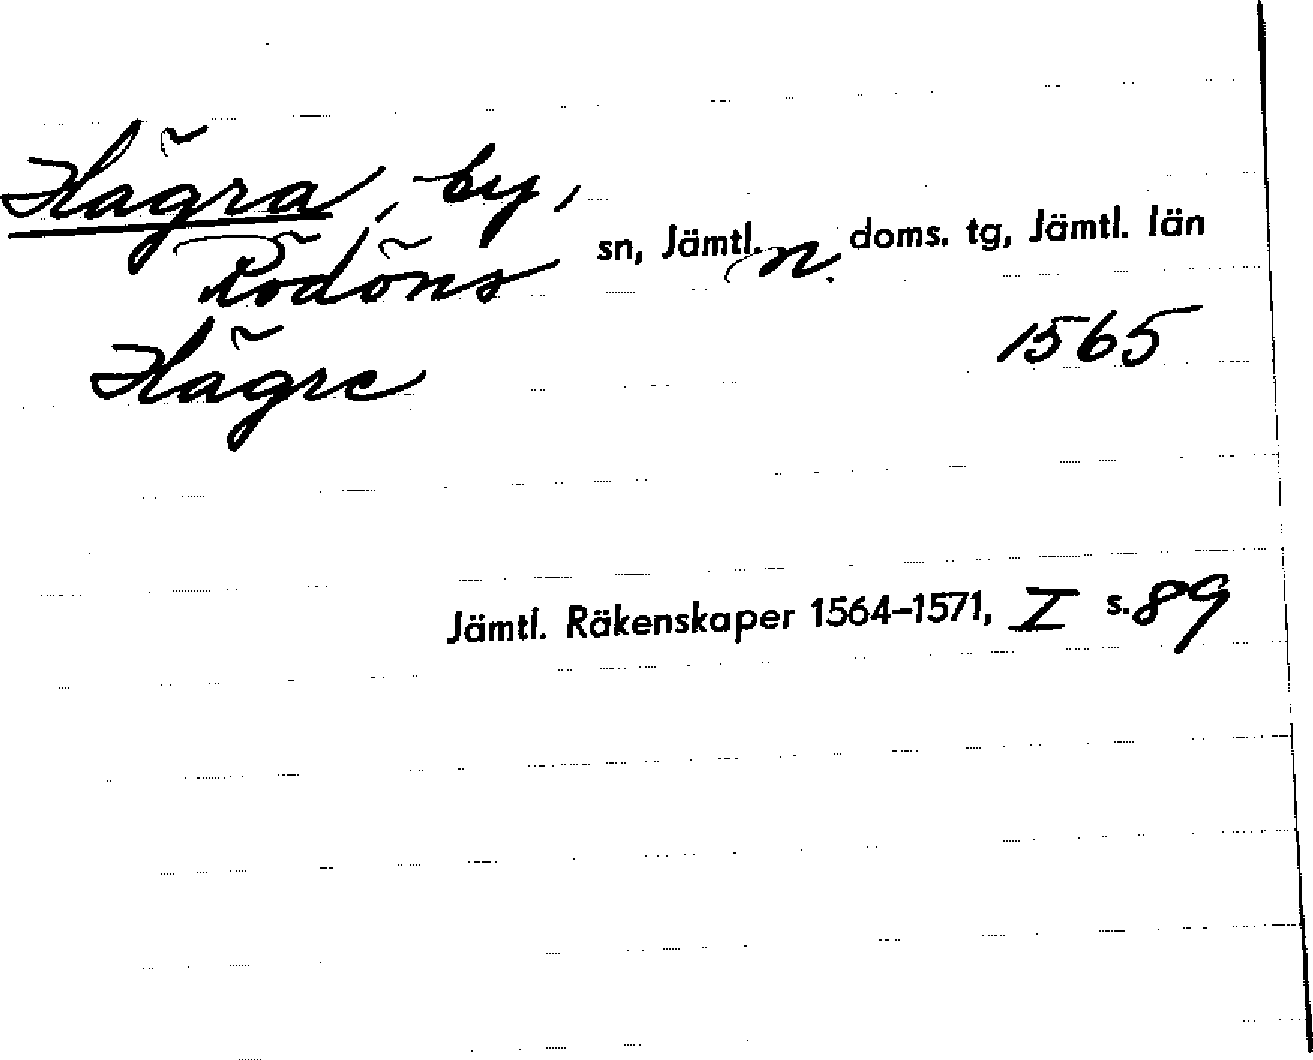 Hägra, by,
Rödöns sn, Jämtl. n. doms. tg, Jämtl. län
Hägre 1565
Jämtl. Räkenskaper 1564-1571, I s. 89